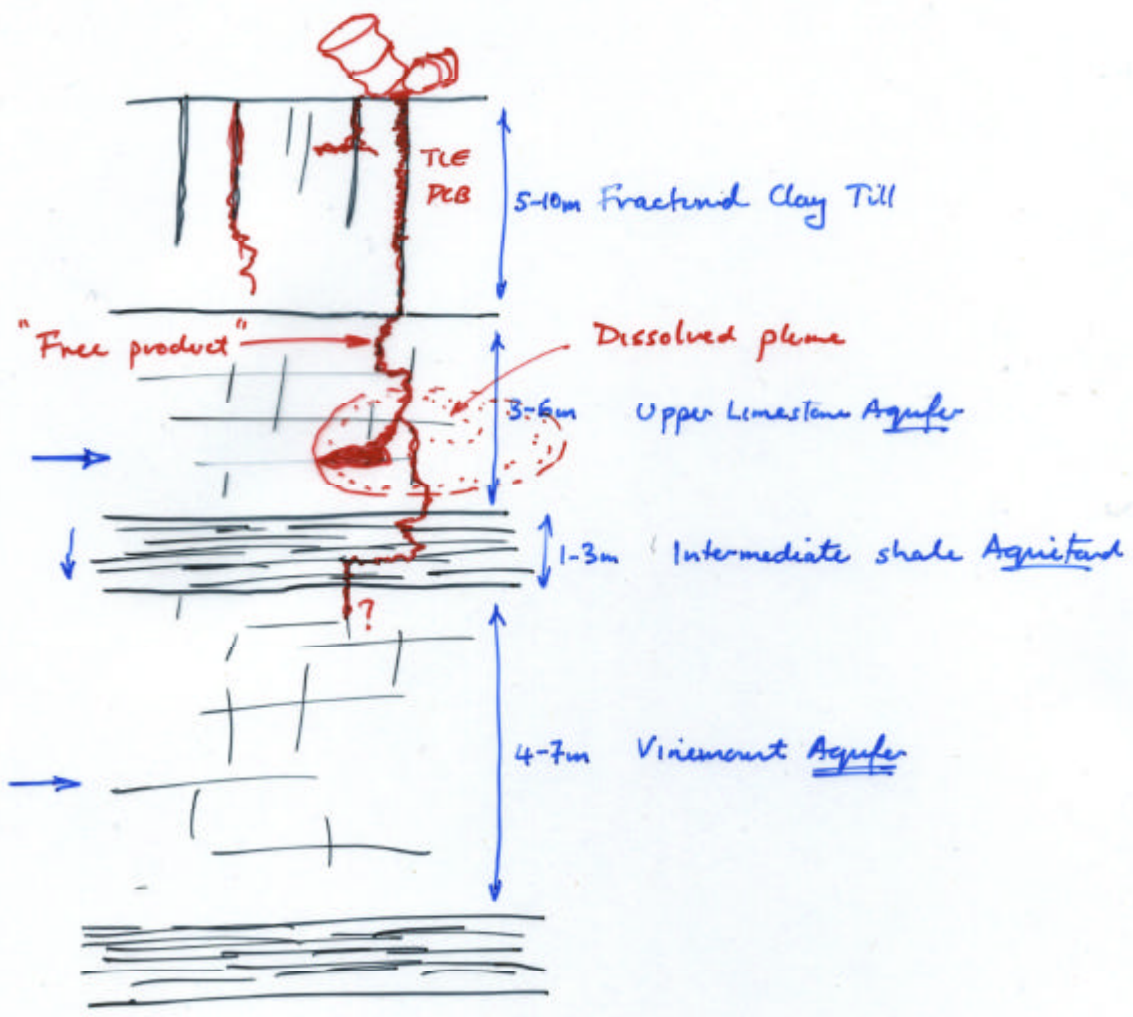 TCE
PCB
5-10m Fractured Clay Till
"Free product"
Dissolved plume
3-6m Upper Limestone Aquifer
1-3m Intermediate shale Aquitard
?
4-7m Vinemount Aquifer